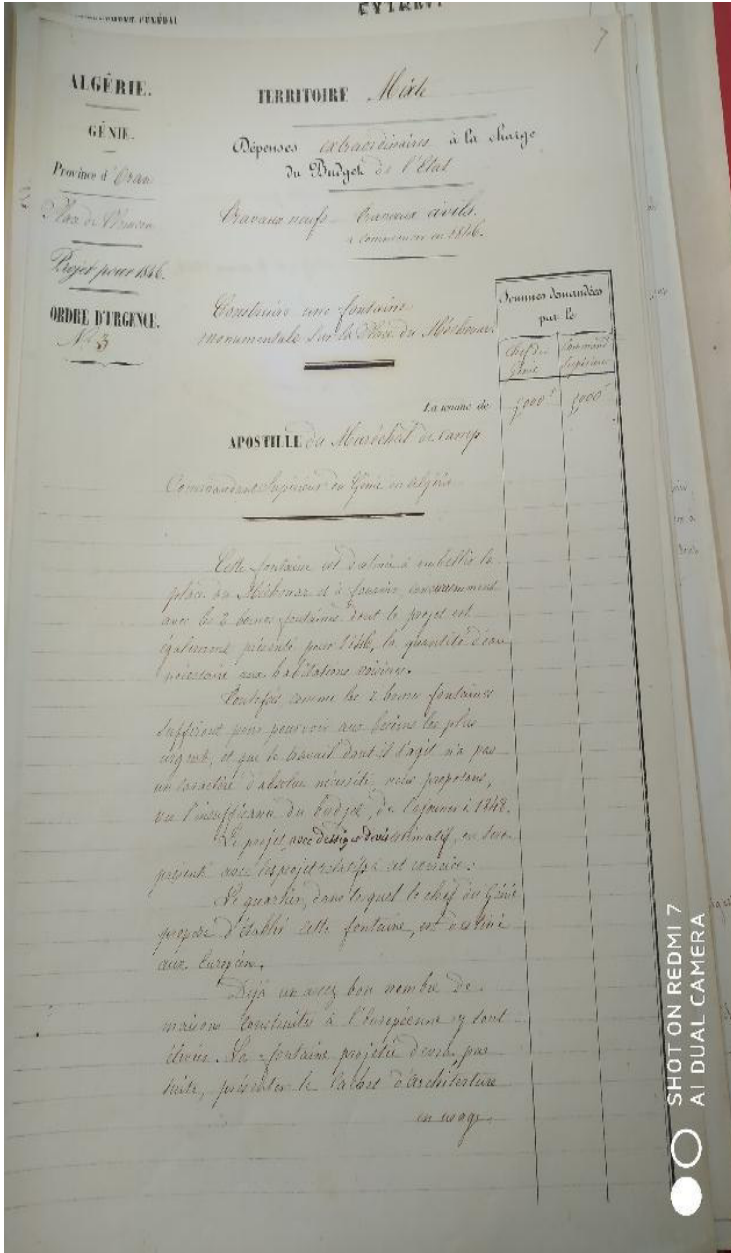 7
ALGÉRIE.
GÉNIE.
Province d'Oran
Place de Tlemcen
Projet pour 1846.
ORDRE D'URGENCE.
N° 3
TERRITOIRE Mixte
Dépenses extraordinaires à la charge
du Budget de l'État
Travaux neufs – travaux civils.
à commencer en 1846.
Construire une fontaine
monumentale sur la Place du Méchouar.
Sommes demandées
par le
Chef du
Génie
Command.
Supérieur
La somme de
APOSTILLE du Maréchal de camp
Commandant Supérieur du Génie en Algérie
Cette fontaine est destinée à embellir la
place du Méchouar et à fournir, concurremment
avec les 2 bornes fontaines dont le projet est
également présenté pour 1846, la quantité d'eau
nécessaire aux habitations voisines.
Toutefois, comme les 2 bornes fontaines
suffiront pour pourvoir aux besoins les plus
urgents, et que le travail dont il s'agit n'a pas
un caractère d'absolue nécessité, nous proposons,
vu l'insuffisance du budget, de l'ajourner à 1848.
Le projet, avec dessin et devis estimatif, en sera
présenté avec les projets relatifs à cet exercice.
Le quartier, dans lequel le chef du Génie
propose d'établir cette fontaine, est destiné
aux Européens.
Déjà un assez bon nombre de
maisons construites à l'Européenne y sont
élevées. La fontaine projetée devra, par
suite, présenter le cachet d'architecture
en usage
SHOT ON REDMI 7
AI DUAL CAMERA